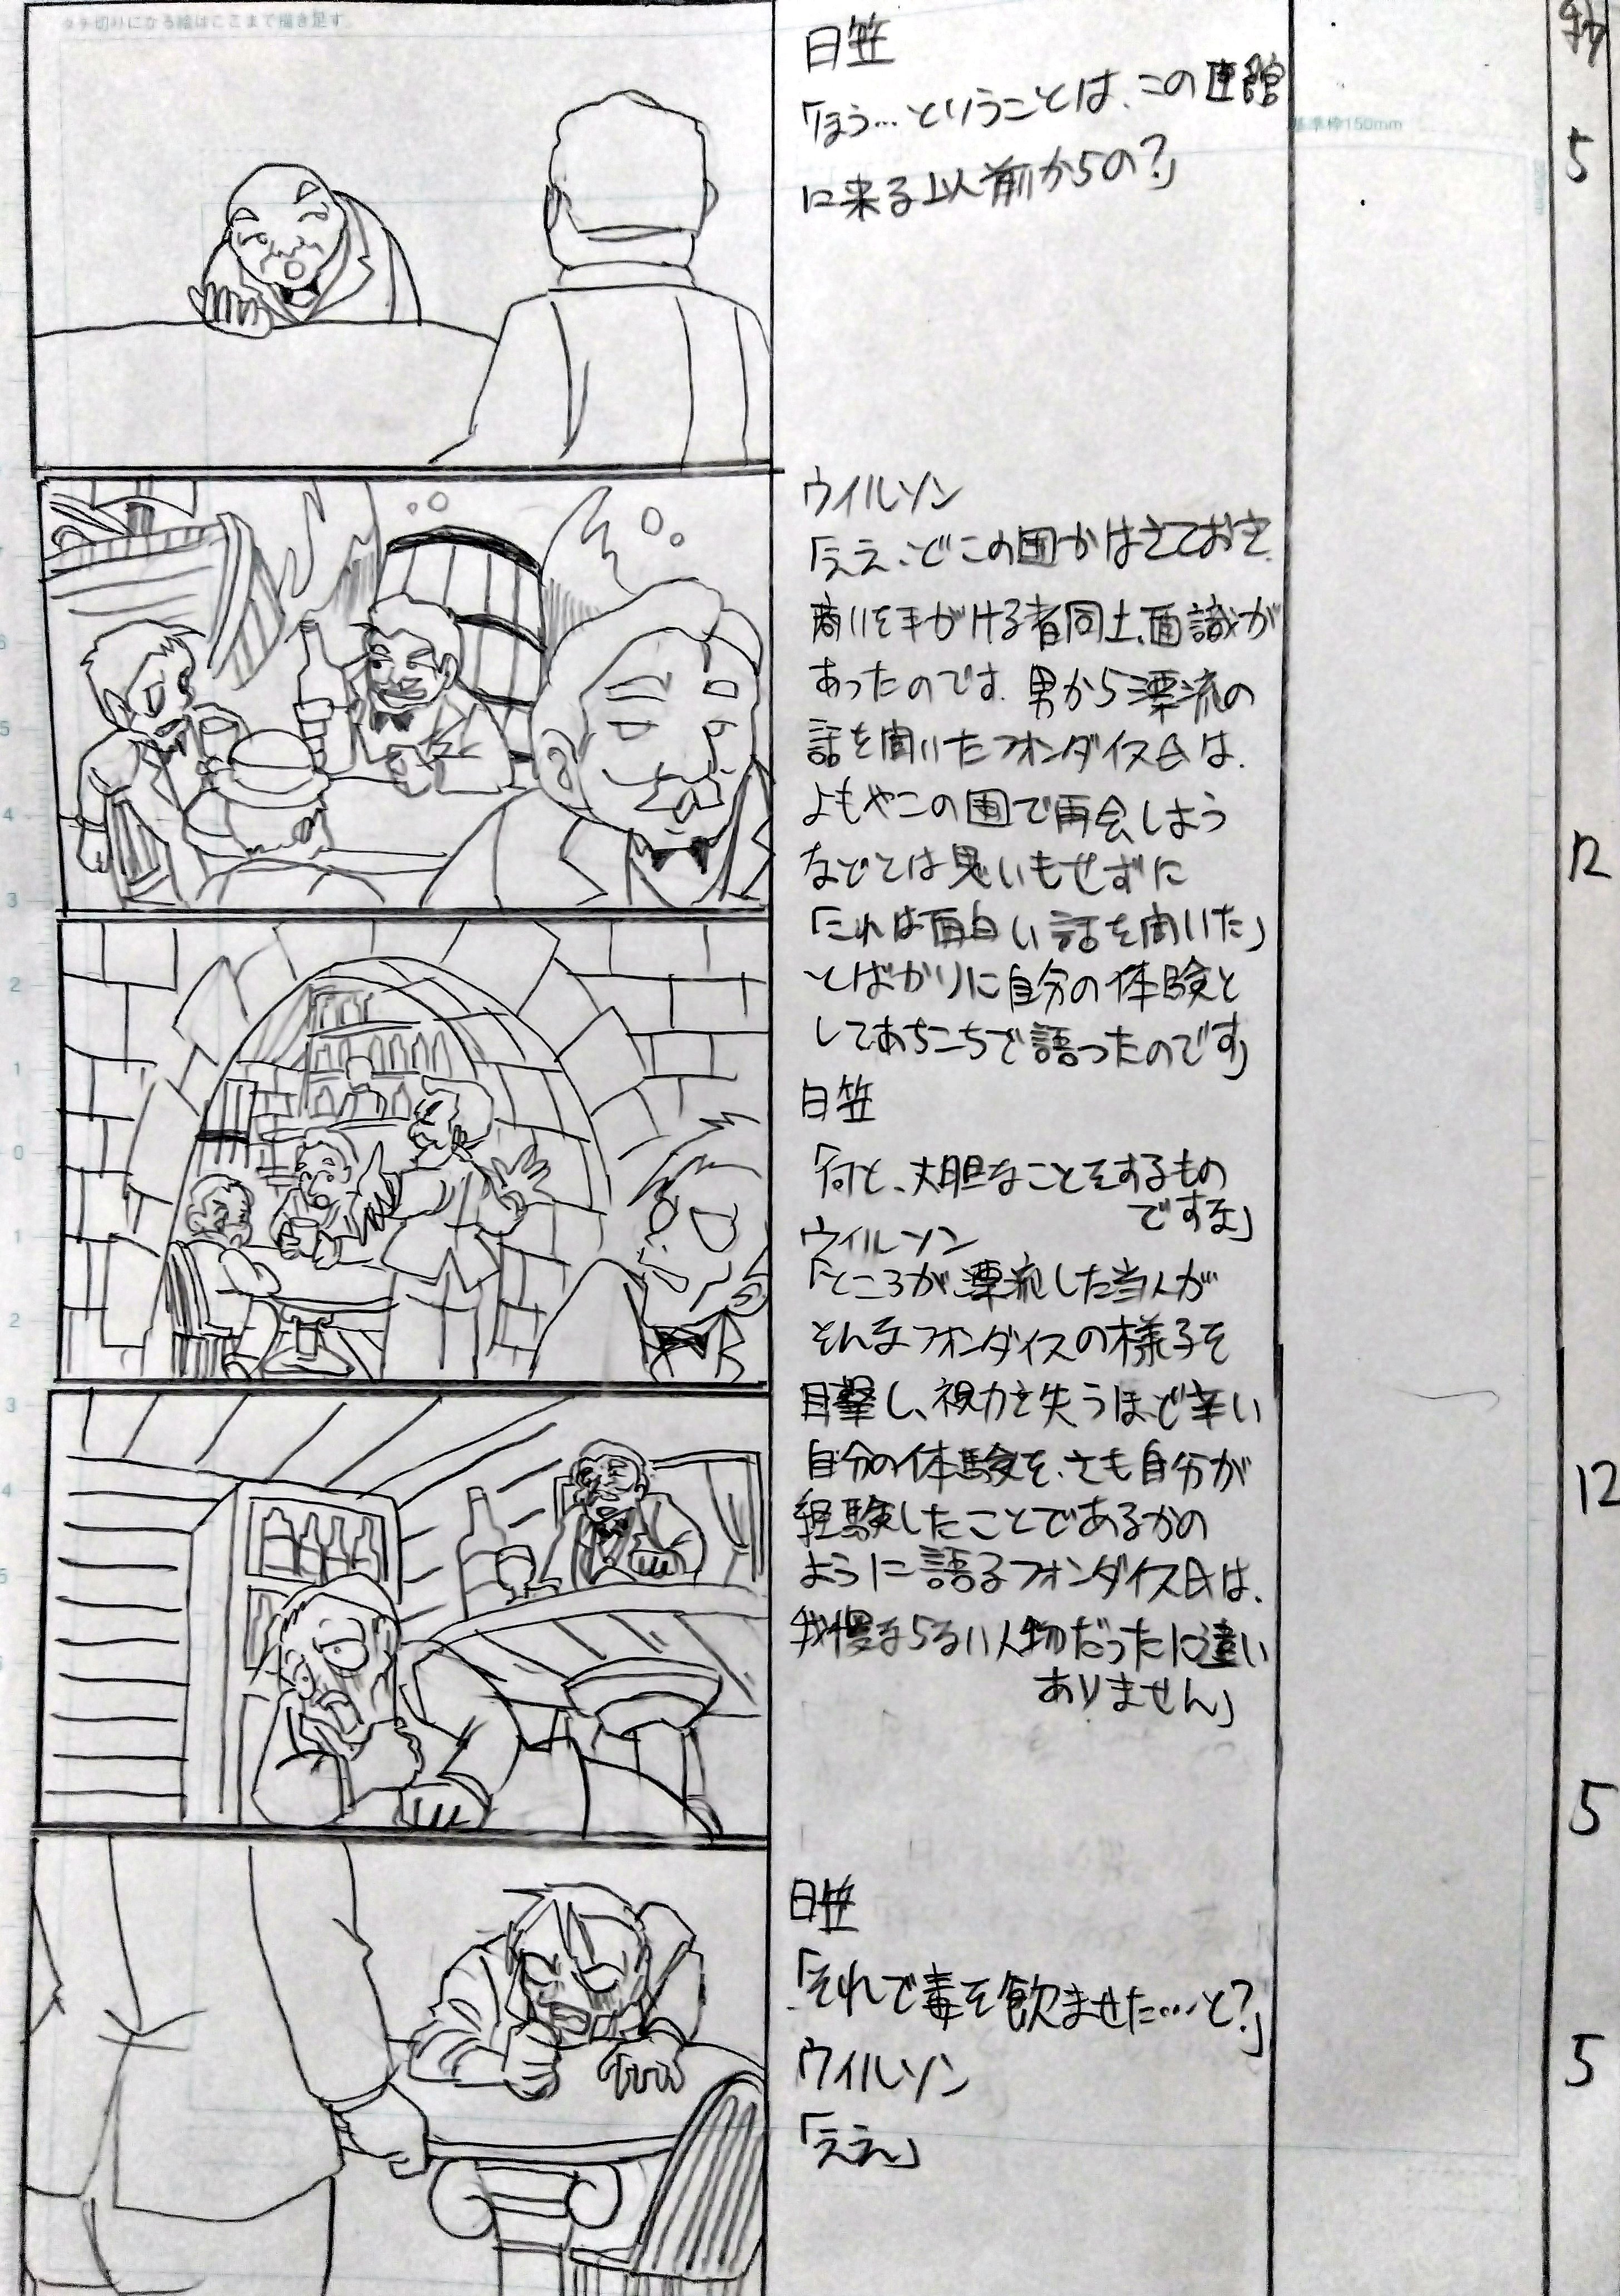 タチ切りになる絵はここまで描き足す。
日笠
秒
「ほう…ということは、この建館
基準枠150mm
5
に来る以前からの?」
ウイルソン
「ええ、どこの国かはさておき、
商いを手がける者同士、面識が
あったのです。男から漂流の
話を聞いたフォンダイス氏は、
よもやこの国で再会しよう
12
などとは思いもせずに
「これは面白い話を聞いた」
とばかりに自分の体験と
してあちこちで語ったのです」
日笠
「何と、大胆なことをするもの
ですな」
ウイルソン
「ところが漂流した当人が
そんなフォンダイスの様子を
目撃し、視力を失うほど辛い
自分の体験を、さも自分が
12
経験したことであるかの
ように語るフォンダイス氏は、
我慢ならない人物だったに違い
ありません」
5
日笠
「それで毒を飲ませた…と?」
ウイルソン
5
「ええ」